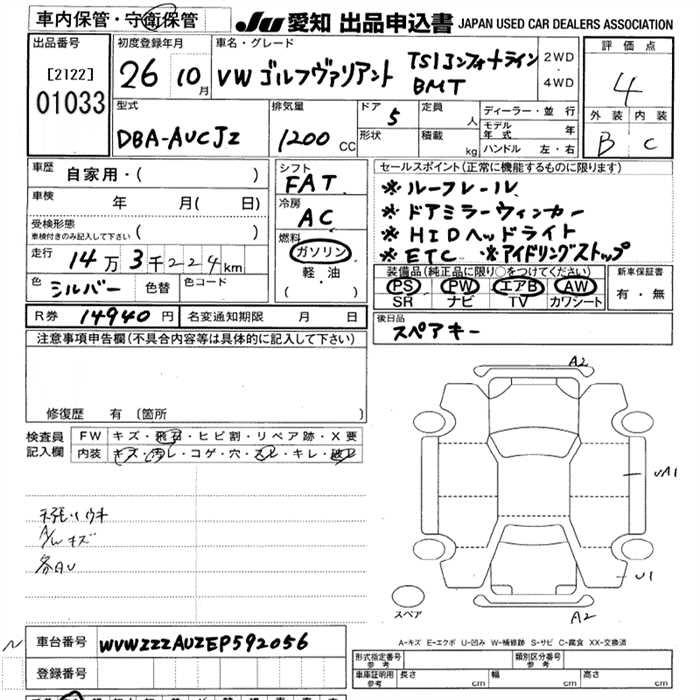 車内保管・守衛保管
JU 愛知 出品申込書 JAPAN USED CAR DEALERS ASSOCIATION
出品番号
[2122]
01033
初度登録年月
26 10月
車名・グレード
VW ゴルフヴァリアント TSIコンフォートライン
BMT
2WD
・
4WD
評価点
4
外装 内装
B C
型式
DBA-AUCJZ
排気量
1200 CC
ドア 5
形状
定員 人
積載 kg
ディーラー・並行
モデル年式 年
ハンドル 左・右
車歴 自家用・( )
車検 年 月( 日)
受検形態
車検付きのみ記入して下さい ( )
走行 14万3千224km
色 シルバー 色替 色コード
R券 14940円 名変通知期限 月 日
シフト
FAT
冷房
AC
燃料
ガソリン
軽・油
( )
セールスポイント(正常に機能するものに限ります)
※ルーフレール
※ドアミラーウィンカー
※HIDヘッドライト
※ETC ※アイドリングストップ
装備品(純正品に限り○をつけてください)
PS PW エアB AW
SR ナビ TV カワシート
新車保証書
有・無
後日品
スペアキー
注意事項申告欄(不具合内容等は具体的に記入して下さい)
修復歴 有 〔箇所
検査員
記入欄
FW キズ・飛石・ヒビ割・リペア跡・X要
内装 キズ・汚レ・コゲ・穴・スレ・キレ・破レ
天張りウキ
A/Wキズ
各AU
A2
UA1
U1
A2
スペア
A-キズ E-エクボ U-凹み W-補修跡 S-サビ C-腐食 XX-交換済
車台番号 WVWZZZAUZEP592056
登録番号
形式指定番号
参考
類別区分番号
参考
車庫証明用
参考
長さ cm 幅 cm 高さ cm